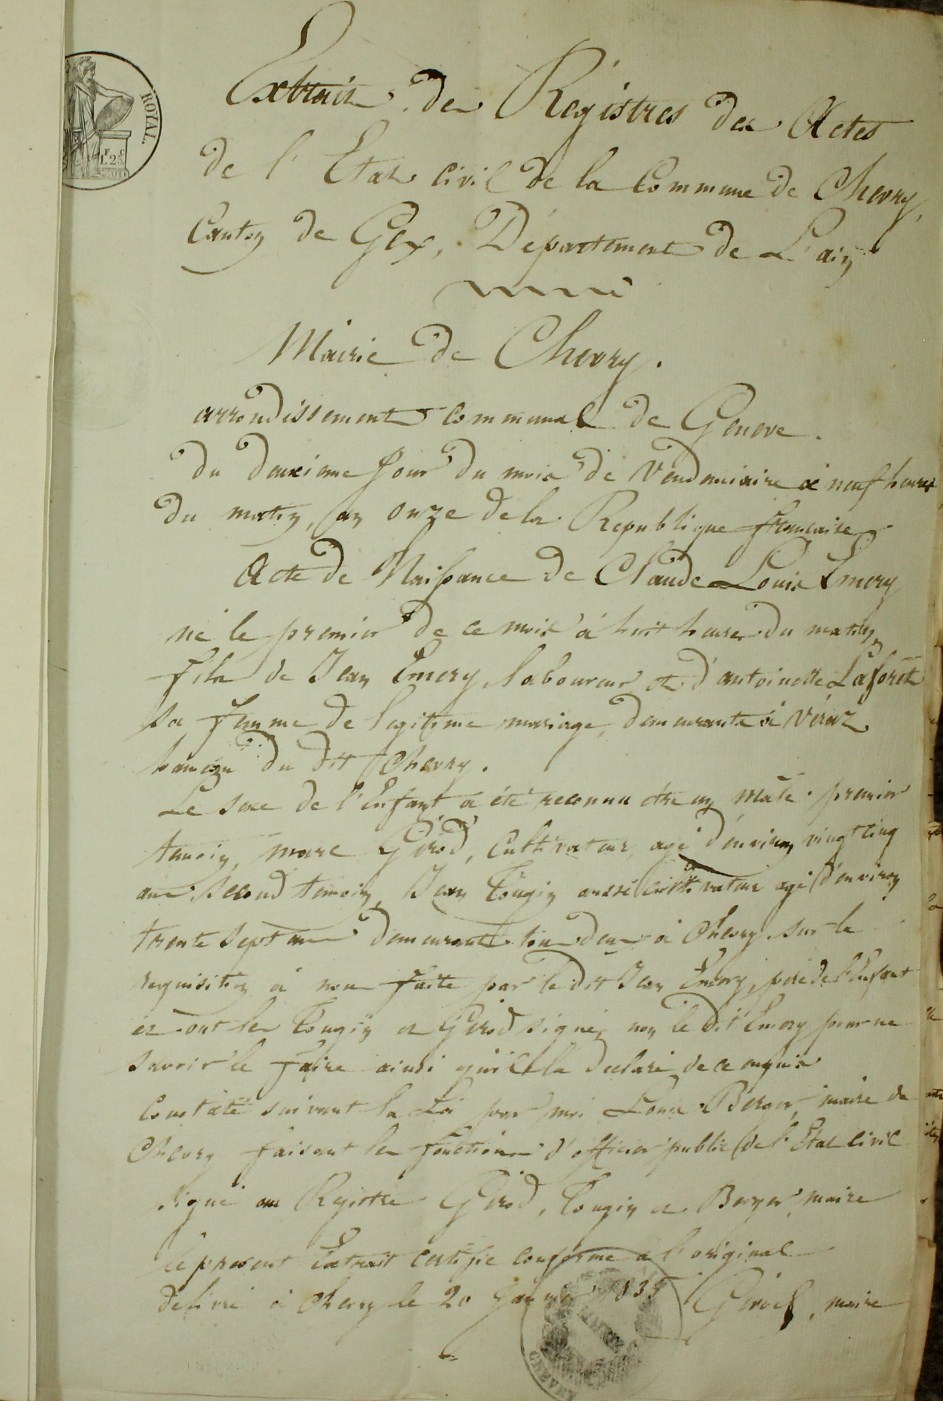 ROYAL.
Extrait des Régistres des Actes
de l'Etat civil de la Commune de Chevry,
Canton de Gex, Département de L'ain
Mairie de Chevry.
arrondissement communal de Geneve.
du deuxieme Jour du mois de Vendemiaire à neuf heures
du matin, an onze de la Republique francaise
Acte de Naissance de Claude Louis Emery
né le premier de ce mois à huit heures du matin,
fils de Jean Emery, laboureur et d'antoinette Laforêt
sa femme de legitime mariage, demeurants à Véraz
hameau du dit Chevry.
Le sexe de l'Enfant a été reconnu être un mâle. premier
temoin, marc Girod, cultivateur agé d'environ vingt cinq
ans. Second temoin, Jean Tougin aussi cultivateur agé d'environ
trente sept ans demeurants tous deux à Chevry. sur le
requisition à nous faite par le dit Jean Emery, père de l'Enfant
et ont les Tougin et Girod signé, non le dit Emery pour ne
savoir le faire ainsi qu'il l'a declaré de ce enquis
Constaté suivant la Loi par moi Louis Berger, maire de
Chevry faisant les fonctions d'officier public de l'Etat civil
Signé au Registre Girod, Tougin et Berger, maire
le present Extrait certifié conforme à l'original
delivré à Chevry le 20 Janvier 1835 Girod, maire